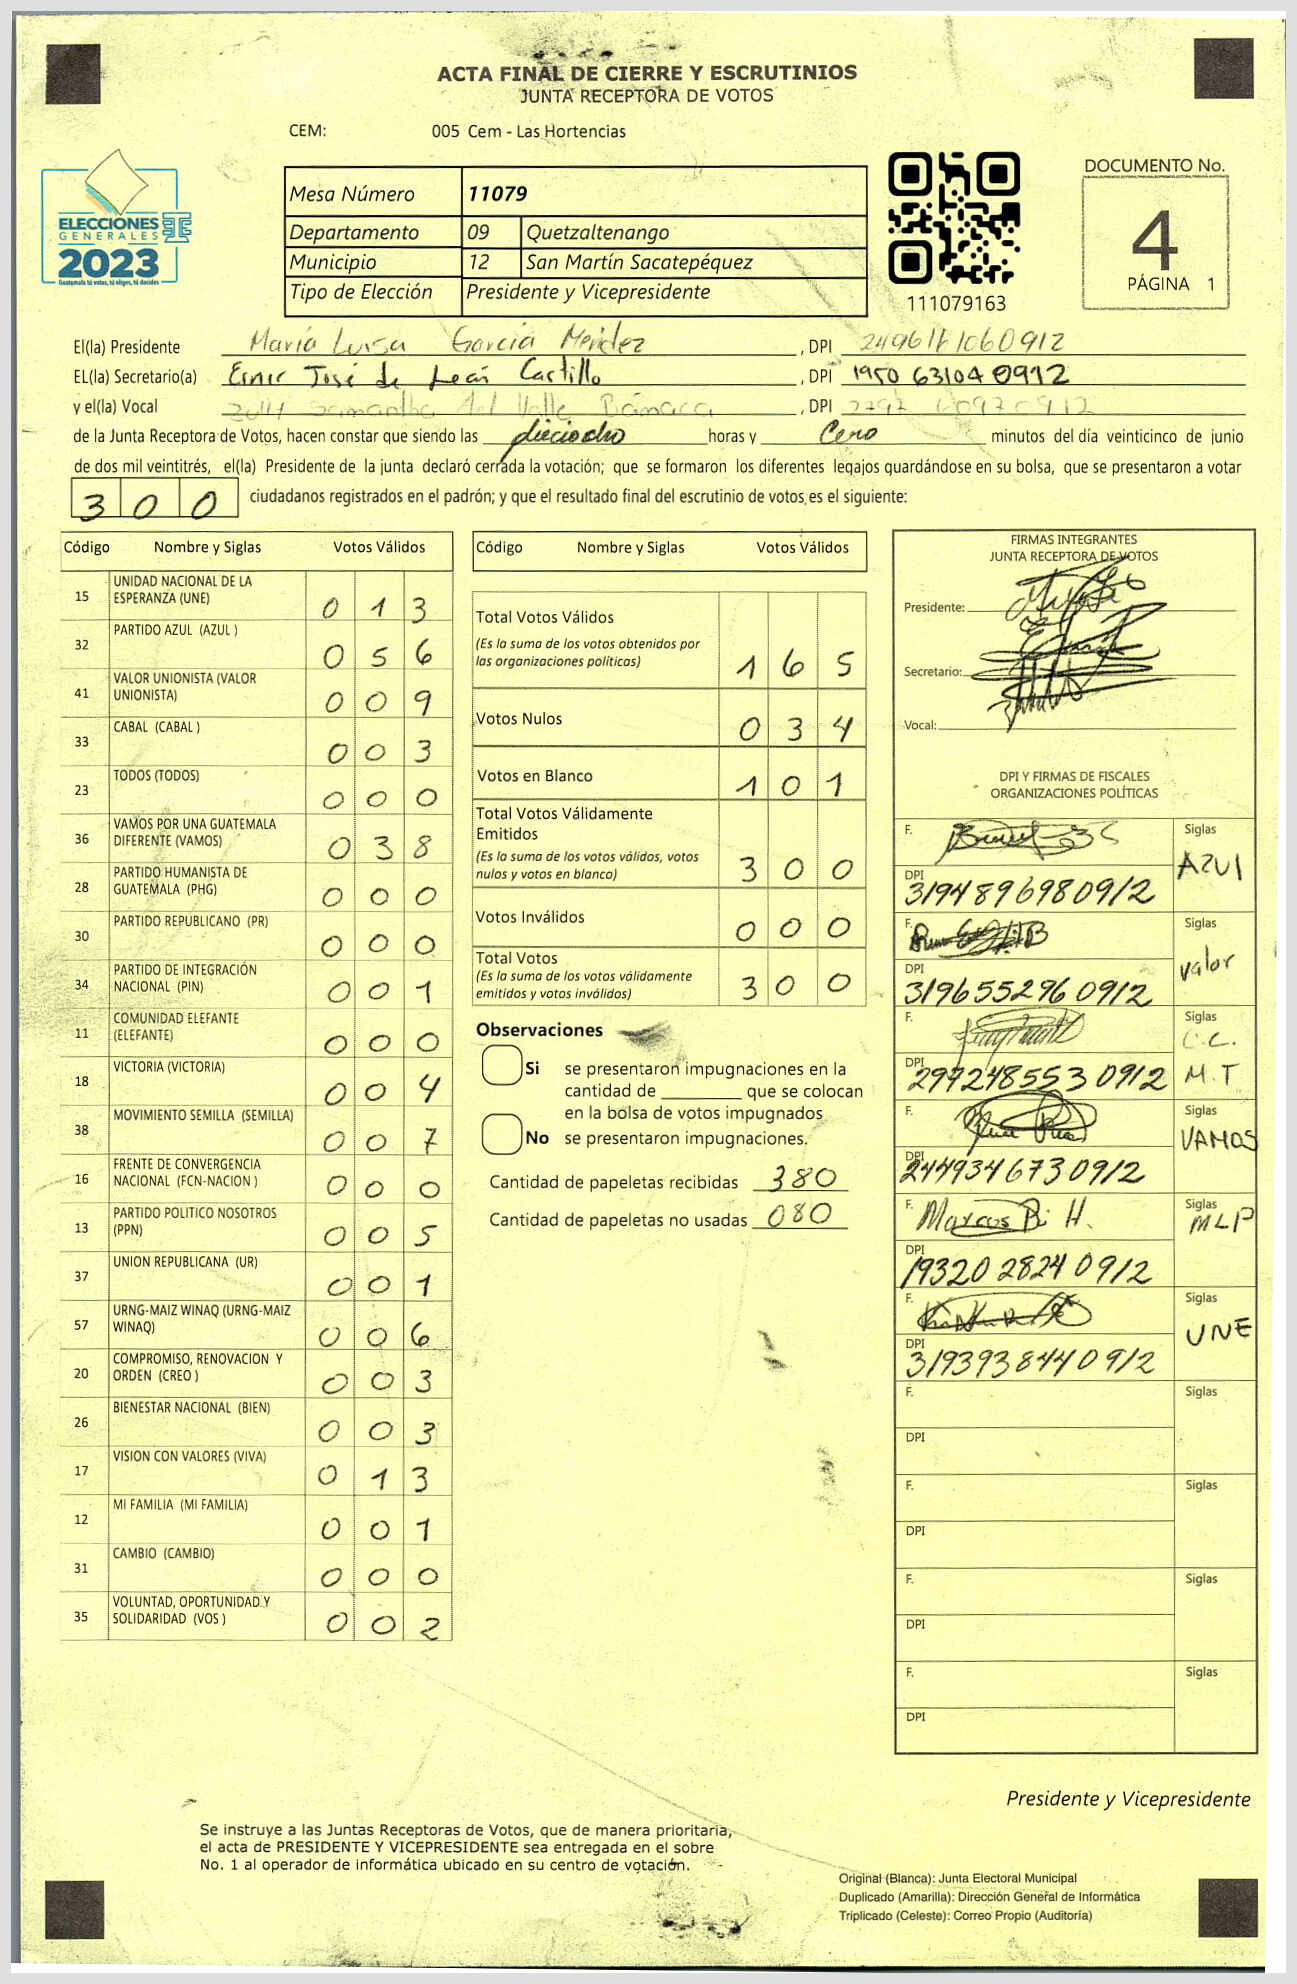 ACTA FINAL DE CIERRE Y ESCRUTINIOS
JUNTA RECEPTORA DE VOTOS
CEM: 005 Cem - Las Hortencias
ELECCIONES
GENERALES
2023
Guatemala tú votas, tú eliges, tú decides
Mesa Número 11079
Departamento 09 Quetzaltenango
Municipio 12 San Martín Sacatepéquez
Tipo de Elección Presidente y Vicepresidente
111079163
DOCUMENTO No.
4
PÁGINA 1
El(la) Presidente María Luisa García Méndez, DPI 2496161060912
EL(la) Secretario(a) José de León Castillo, DPI 1950 63104 0912
y el(la) Vocal Samantha del Valle, DPI
de la Junta Receptora de Votos, hacen constar que siendo las dieciocho horas y Cero minutos del día veinticinco de junio
de dos mil veintitrés, el(la) Presidente de la junta declaró cerrada la votación; que se formaron los diferentes legajos guardándose en su bolsa, que se presentaron a votar
300 ciudadanos registrados en el padrón; y que el resultado final del escrutinio de votos es el siguiente:
Código Nombre y Siglas Votos Válidos
15 UNIDAD NACIONAL DE LA ESPERANZA (UNE) 013
32 PARTIDO AZUL (AZUL ) 056
41 VALOR UNIONISTA (VALOR UNIONISTA) 009
33 CABAL (CABAL ) 003
23 TODOS (TODOS) 000
36 VAMOS POR UNA GUATEMALA DIFERENTE (VAMOS) 038
28 PARTIDO HUMANISTA DE GUATEMALA (PHG) 000
30 PARTIDO REPUBLICANO (PR) 000
34 PARTIDO DE INTEGRACIÓN NACIONAL (PIN) 001
11 COMUNIDAD ELEFANTE (ELEFANTE) 000
18 VICTORIA (VICTORIA) 004
38 MOVIMIENTO SEMILLA (SEMILLA) 007
16 FRENTE DE CONVERGENCIA NACIONAL (FCN-NACION ) 000
13 PARTIDO POLITICO NOSOTROS (PPN) 005
37 UNION REPUBLICANA (UR) 001
57 URNG-MAIZ WINAQ (URNG-MAIZ WINAQ) 006
20 COMPROMISO, RENOVACION Y ORDEN (CREO ) 003
26 BIENESTAR NACIONAL (BIEN) 003
17 VISION CON VALORES (VIVA) 013
12 MI FAMILIA (MI FAMILIA) 001
31 CAMBIO (CAMBIO) 000
35 VOLUNTAD, OPORTUNIDAD Y SOLIDARIDAD (VOS ) 002
Código Nombre y Siglas Votos Válidos
Total Votos Válidos
(Es la suma de los votos obtenidos por
las organizaciones políticas) 165
Votos Nulos 034
Votos en Blanco 101
Total Votos Válidamente
Emitidos
(Es la suma de los votos válidos, votos
nulos y votos en blanco) 300
Votos Inválidos 000
Total Votos
(Es la suma de los votos válidamente
emitidos y votos inválidos) 300
Observaciones
Si se presentaron impugnaciones en la
cantidad de ________ que se colocan
en la bolsa de votos impugnados
No se presentaron impugnaciones.
Cantidad de papeletas recibidas 380
Cantidad de papeletas no usadas 080
FIRMAS INTEGRANTES
JUNTA RECEPTORA DE VOTOS
Presidente:
Secretario:
Vocal:
DPI Y FIRMAS DE FISCALES
ORGANIZACIONES POLÍTICAS
F. Siglas AZUL
DPI 3194896980912
F. Siglas Valor
DPI 3196552960912
F. Siglas C.C. M.T
DPI 2972485530912
F. Siglas VAMOS
DPI 2449346730912
F. Marcos H. Siglas MLP
DPI 19320 2824 0912
F. Siglas UNE
DPI 3193938440912
F. Siglas
DPI
F. Siglas
DPI
F. Siglas
DPI
F. Siglas
DPI
Presidente y Vicepresidente
Se instruye a las Juntas Receptoras de Votos, que de manera prioritaria,
el acta de PRESIDENTE Y VICEPRESIDENTE sea entregada en el sobre
No. 1 al operador de informática ubicado en su centro de votación.
Original (Blanca): Junta Electoral Municipal
Duplicado (Amarilla): Dirección General de Informática
Triplicado (Celeste): Correo Propio (Auditoría)